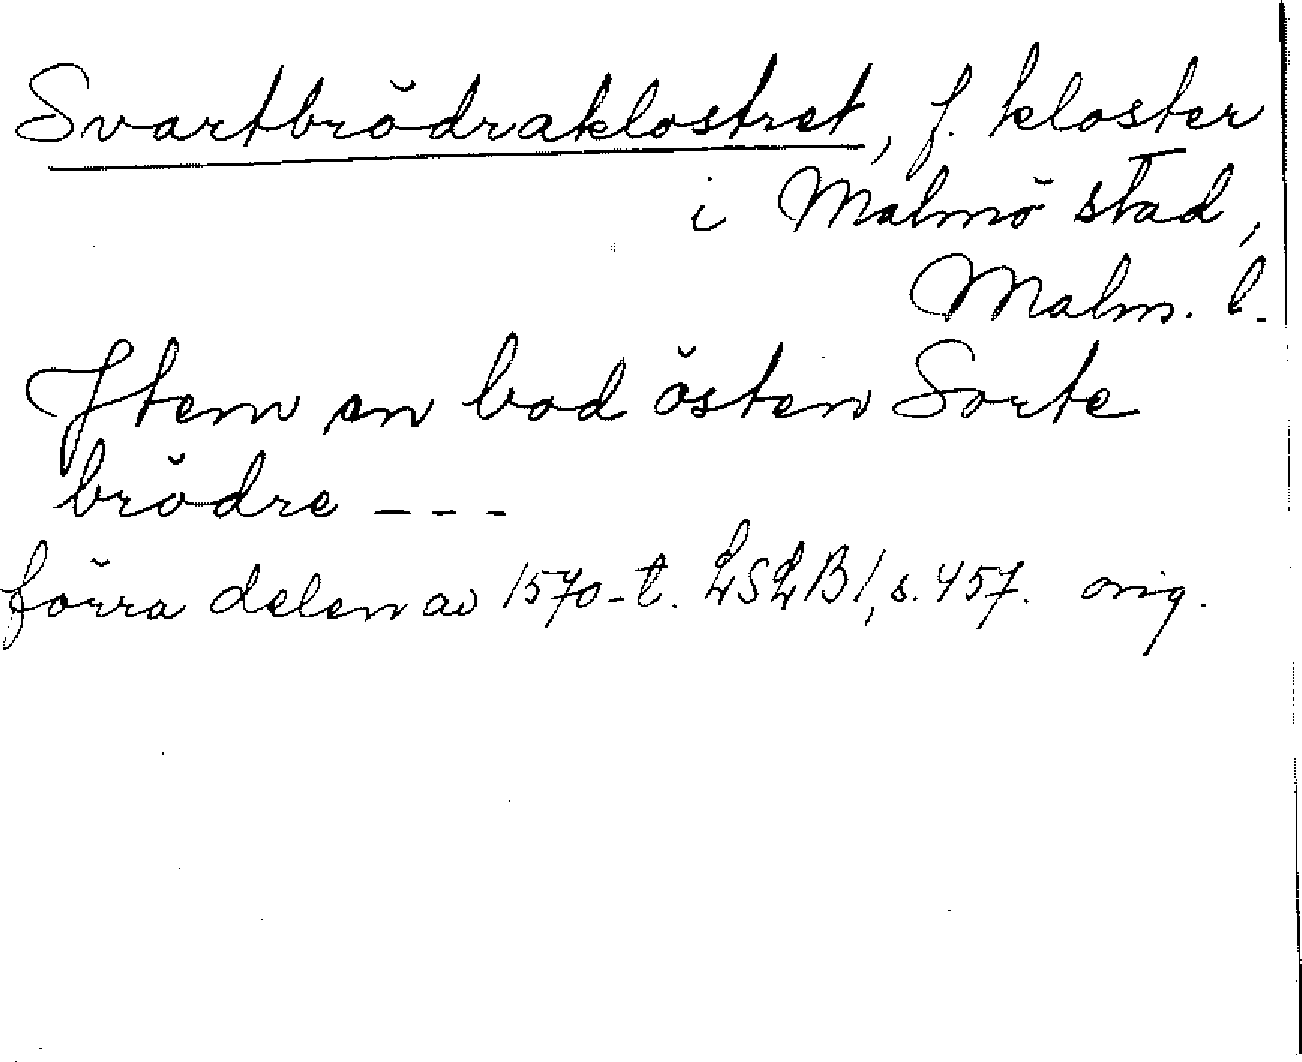 Svartbrödraklostret, f. kloster
i Malmö stad,
Malm. l.
Item en bod östen Sorte
brödre ---
förra delen av 1570-t. LSLB1, s. 457. orig.